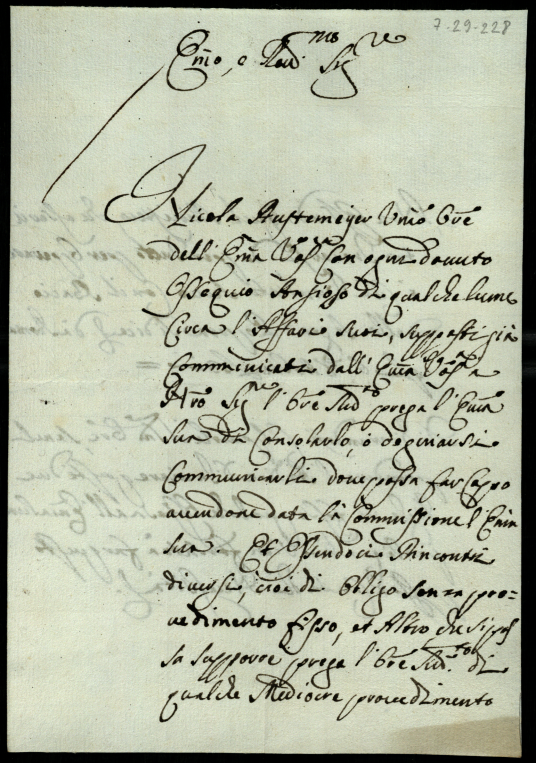 7-29-228
Emo, e Revmo Sigre
Nicola Rustemeyer Umo Ore
dell' Ema Vosa Con ogni dovuto
Ossequio Ansioso di qualche lume
Circa l'Affari suoi, supposti già
Communicati dall' Ema Vosa a
Nro Sigre l'Ore Sudto prega l'Ema
sua di Consolarlo, o degniarsi
Communicarli dove possa far Cappo
avendone data la Commissione l'Ema
sua. Et Essendoci Rincontri
diversi, cioi di Obligo senza pro=
vedimento fisso, et Altro che si pos
sa supporre prega l'Ore Sudto di
qualche Mediocre provedimento